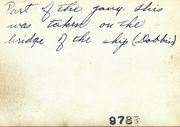 Part of the gang. This
was taken on the
bridge of the ship (Dobbin)
978